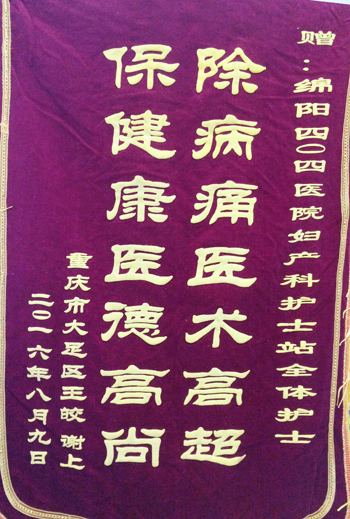 赠：绵阳四〇四医院妇产科护士站全体护士
除病痛医术高超
保健康医德高尚
重庆市大足区王皎 谢上
二〇一六年八月九日